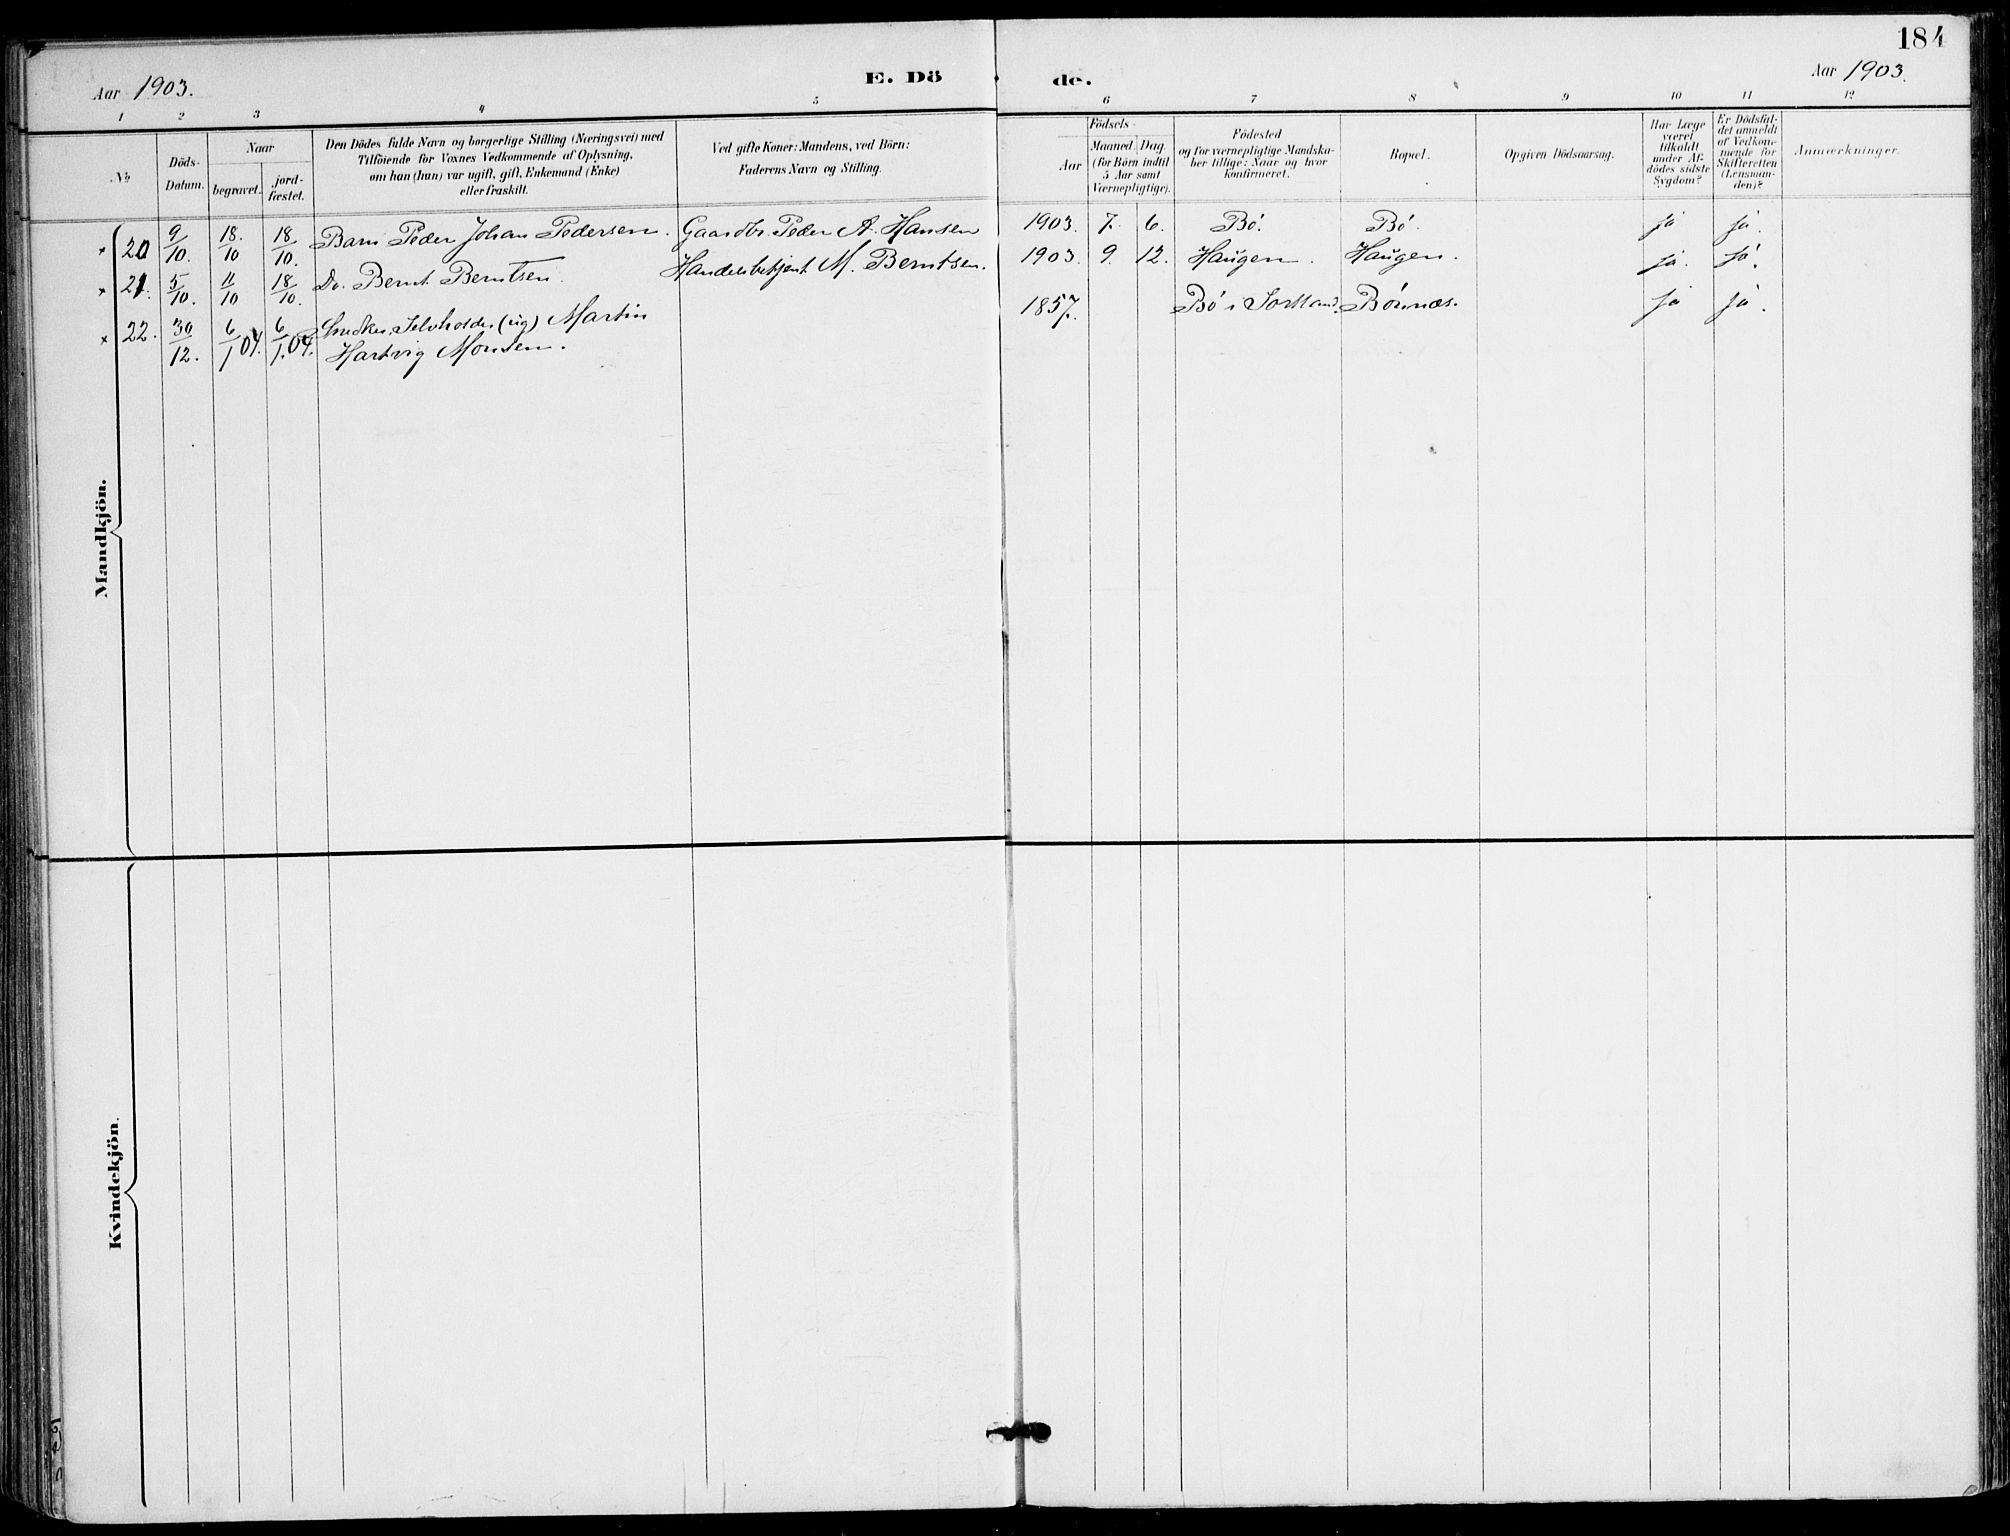 184
Aar 1903.
E. Dö
de.
Aar 1903.
1 2 3 4 5 6 7 8 9 10 11 12
No
Döds-
Datum.
Naar
begravet.
jord-
fæstet.
Den Dödes fulde Navn og borgerlige Stilling (Næringsvei) med
Tilföiende for Voxnes Vedkommende af Oplysning,
om han (hun) var ugift, gift, Enkemand (Enke)
eller fraskilt.
Ved gifte Koner: Mandens, ved Börn:
Faderens Navn og Stilling.
Födsels-
Aar
Maaned. Dag.
(for Börn indtil
5 Aar samt
Værnepligtige).
Födested
og for værnepligtige Mandska-
ber tillige: Naar og hvor
konfirmeret.
Bopæl.
Opgiven Dödsaarsag.
Har Læge
været
tilkaldt
under Af-
dödes sidste
Sygdom?
Er Dödsfal-
det anmeldt
af Vedkom-
mende for
Skifteretten
(Lensman-
den)?
Anmærkninger.
× 20 9/10. 18./10 18/10. Barn Peder Johan Pedersen. Gaardbr. Peder A. Hansen 1903. 7. 6. Bø. Bø. ja ja.
× 21. 5/10. 11/10 18/10. Do. Bernt Berntsen. Handelsbetjent M. Berntsen. 1903. 9. 12. Haugen. Haugen. ja. ja.
× 22. 30/12. 6/1 04. 6/1. 04. Selvholder (ug) Martin 1857. Bø i Sortland. ja ja.
Hartvig Monsen.
Mandkjön.
Kvindekjön.